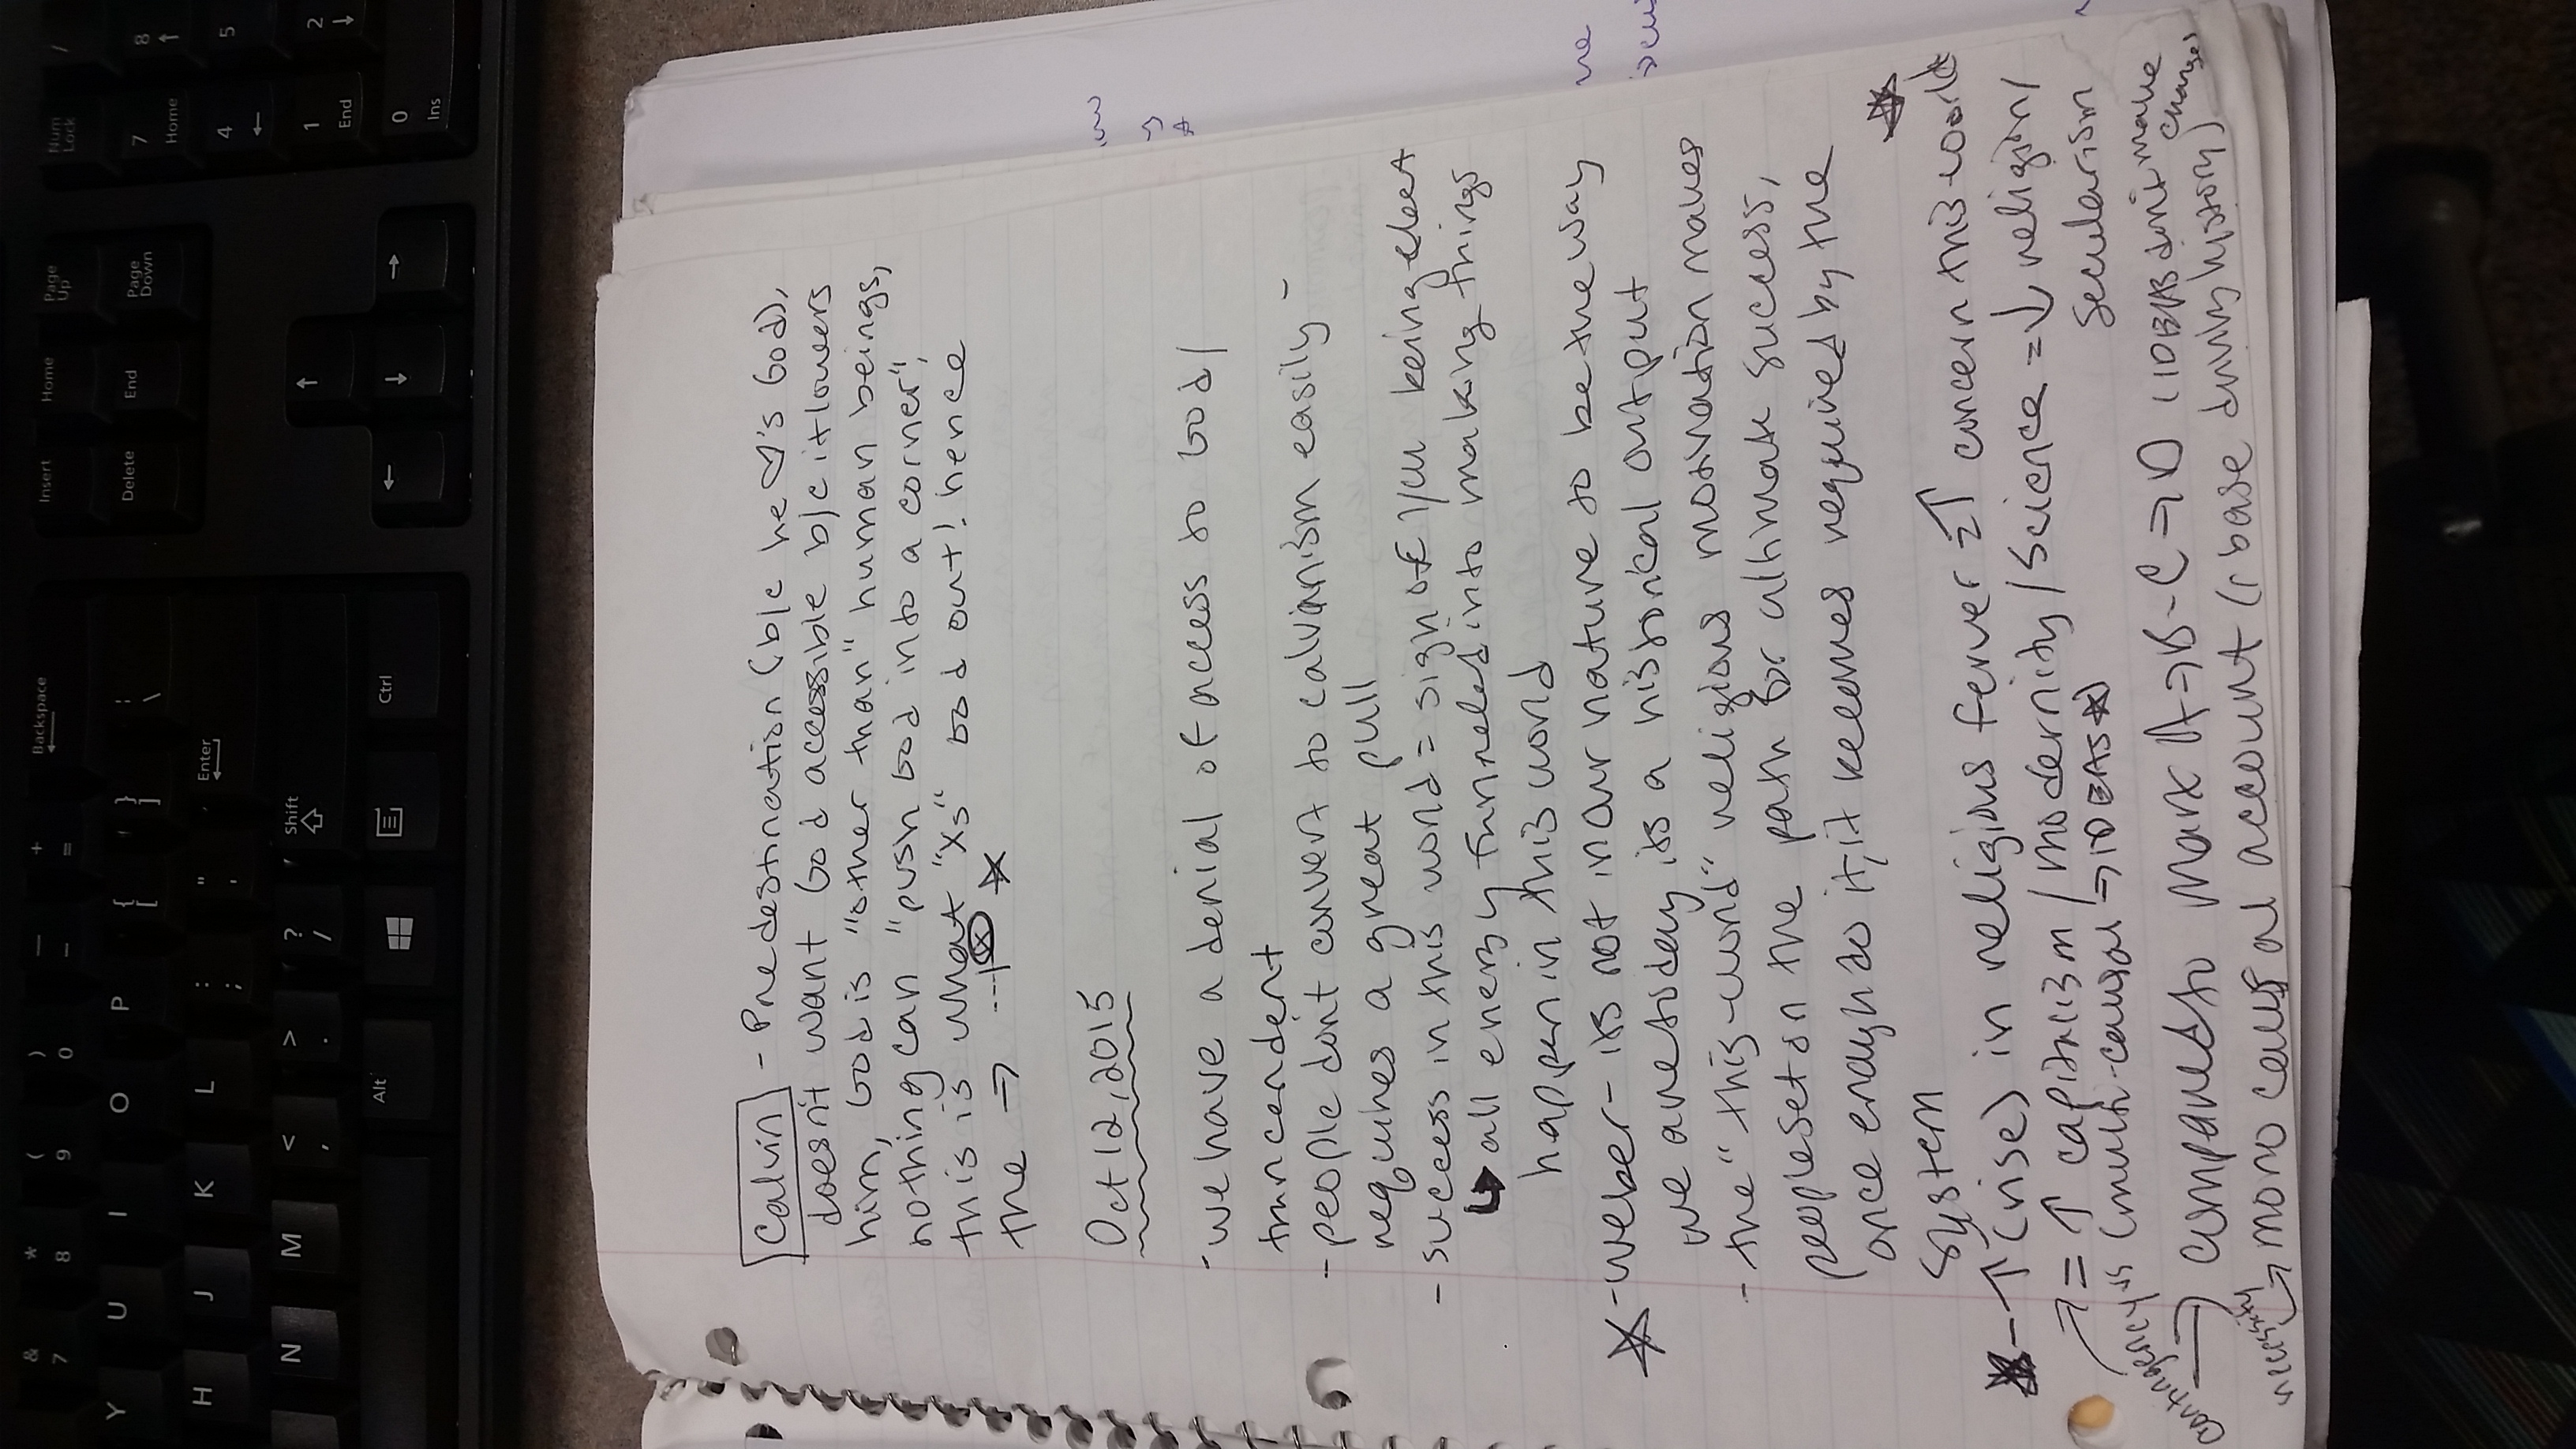 Calvin - Predestination (b/c he ♡'s God),
doesn't want God acessible b/c it lowers
him, God is "other than" human beings,
nothing can "push God into a corner",
this is what "Xs" God out! hence
the ⇒ ---|ⓧ ★
Oct 12, 2015
- we have a denial of access to God/
trancendent
- people don't convert to calvinism easily -
requires a great pull
- success in this world = sign of you being elect
↳ all energy funneled into making things
happen in this world
★ - weber - its not in our nature to be the way
we are today, its a historical output
- the "this-world" religious motivation moves
people set on the path for ultimate success,
once enough do it, it becomes required by the
system
★ - ↑ (rise) in religious ferver = ↑ concern this-world ★
⇒ = ↑ capitalism / modernity / science = ↓ religion /
secularism
(multi-causal ⇒ IDEAS ★
contingency vs
⇒ compared to Marx A → B - C → D (IDEAS don't make
changes)
necessity
→ mono causal account (base driving history)
Backspace
Enter
Shift
Ctrl
Alt
Insert
Home
Page Up
Delete
End
Page Down
Num Lock
/
7 Home
8 ↑
4 ←
5
1 End
2 ↓
0 Ins
& 7
* 8
( 9
) 0
_ -
+ =
Y U I O P { [ } ] | \
H J K L : ; " '
N M < , > . ? /